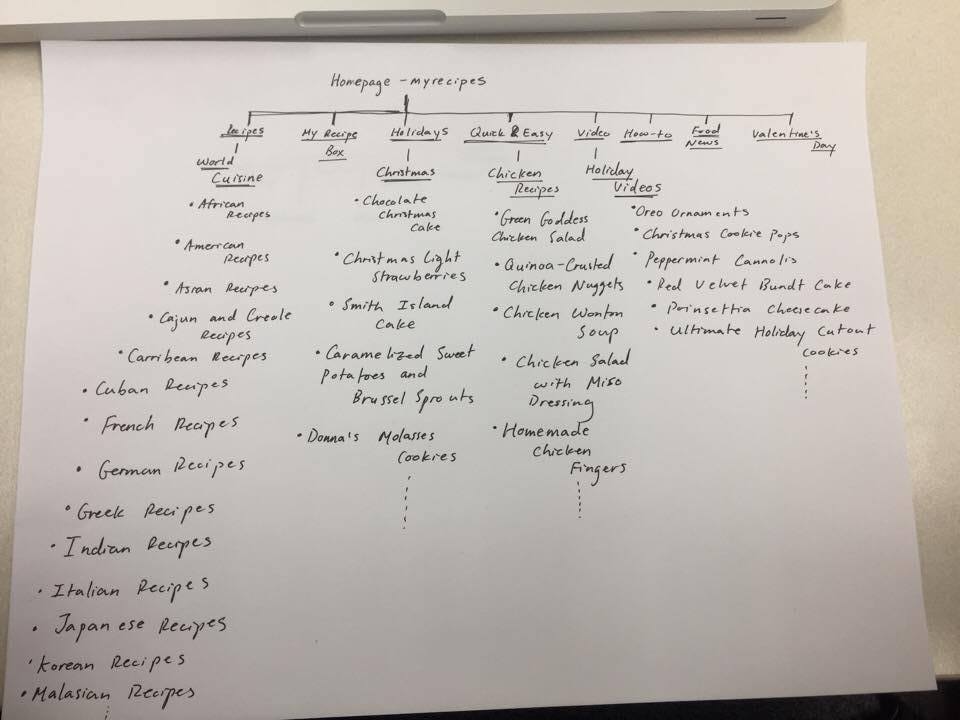 Homepage - myrecipes
Recipes
World
Cuisine
• African
Recipes
• American
Recipes
• Asian Recipes
• Cajun and Creole
Recipes
• Carribean Recipes
• Cuban Recipes
• French Recipes
• German Recipes
• Greek Recipes
• Indian Recipes
• Italian Recipes
• Japanese Recipes
• Korean Recipes
• Malasian Recipes
My Recipe
Box
Holidays
Christmas
• Chocolate
Christmas
Cake
• Christmas Light
Strawberries
• Smith Island
Cake
• Caramelized Sweet
Potatoes and
Brussel Sprouts
• Donna's Molasses
Cookies
Quick & Easy
Chicken
Recipes
• Green Goddess
Chicken Salad
• Quinoa-Crusted
Chicken Nuggets
• Chicken Wonton
Soup
• Chicken Salad
with Miso
Dressing
• Homemade
Chicken
Fingers
Video
Holiday
Videos
• Oreo Ornaments
• Christmas Cookie Pops
• Peppermint Cannolis
• Red Velvet Bundt Cake
• Poinsettia Cheesecake
• Ultimate Holiday Cutout
Cookies
How-to
Food
News
Valentine's
Day